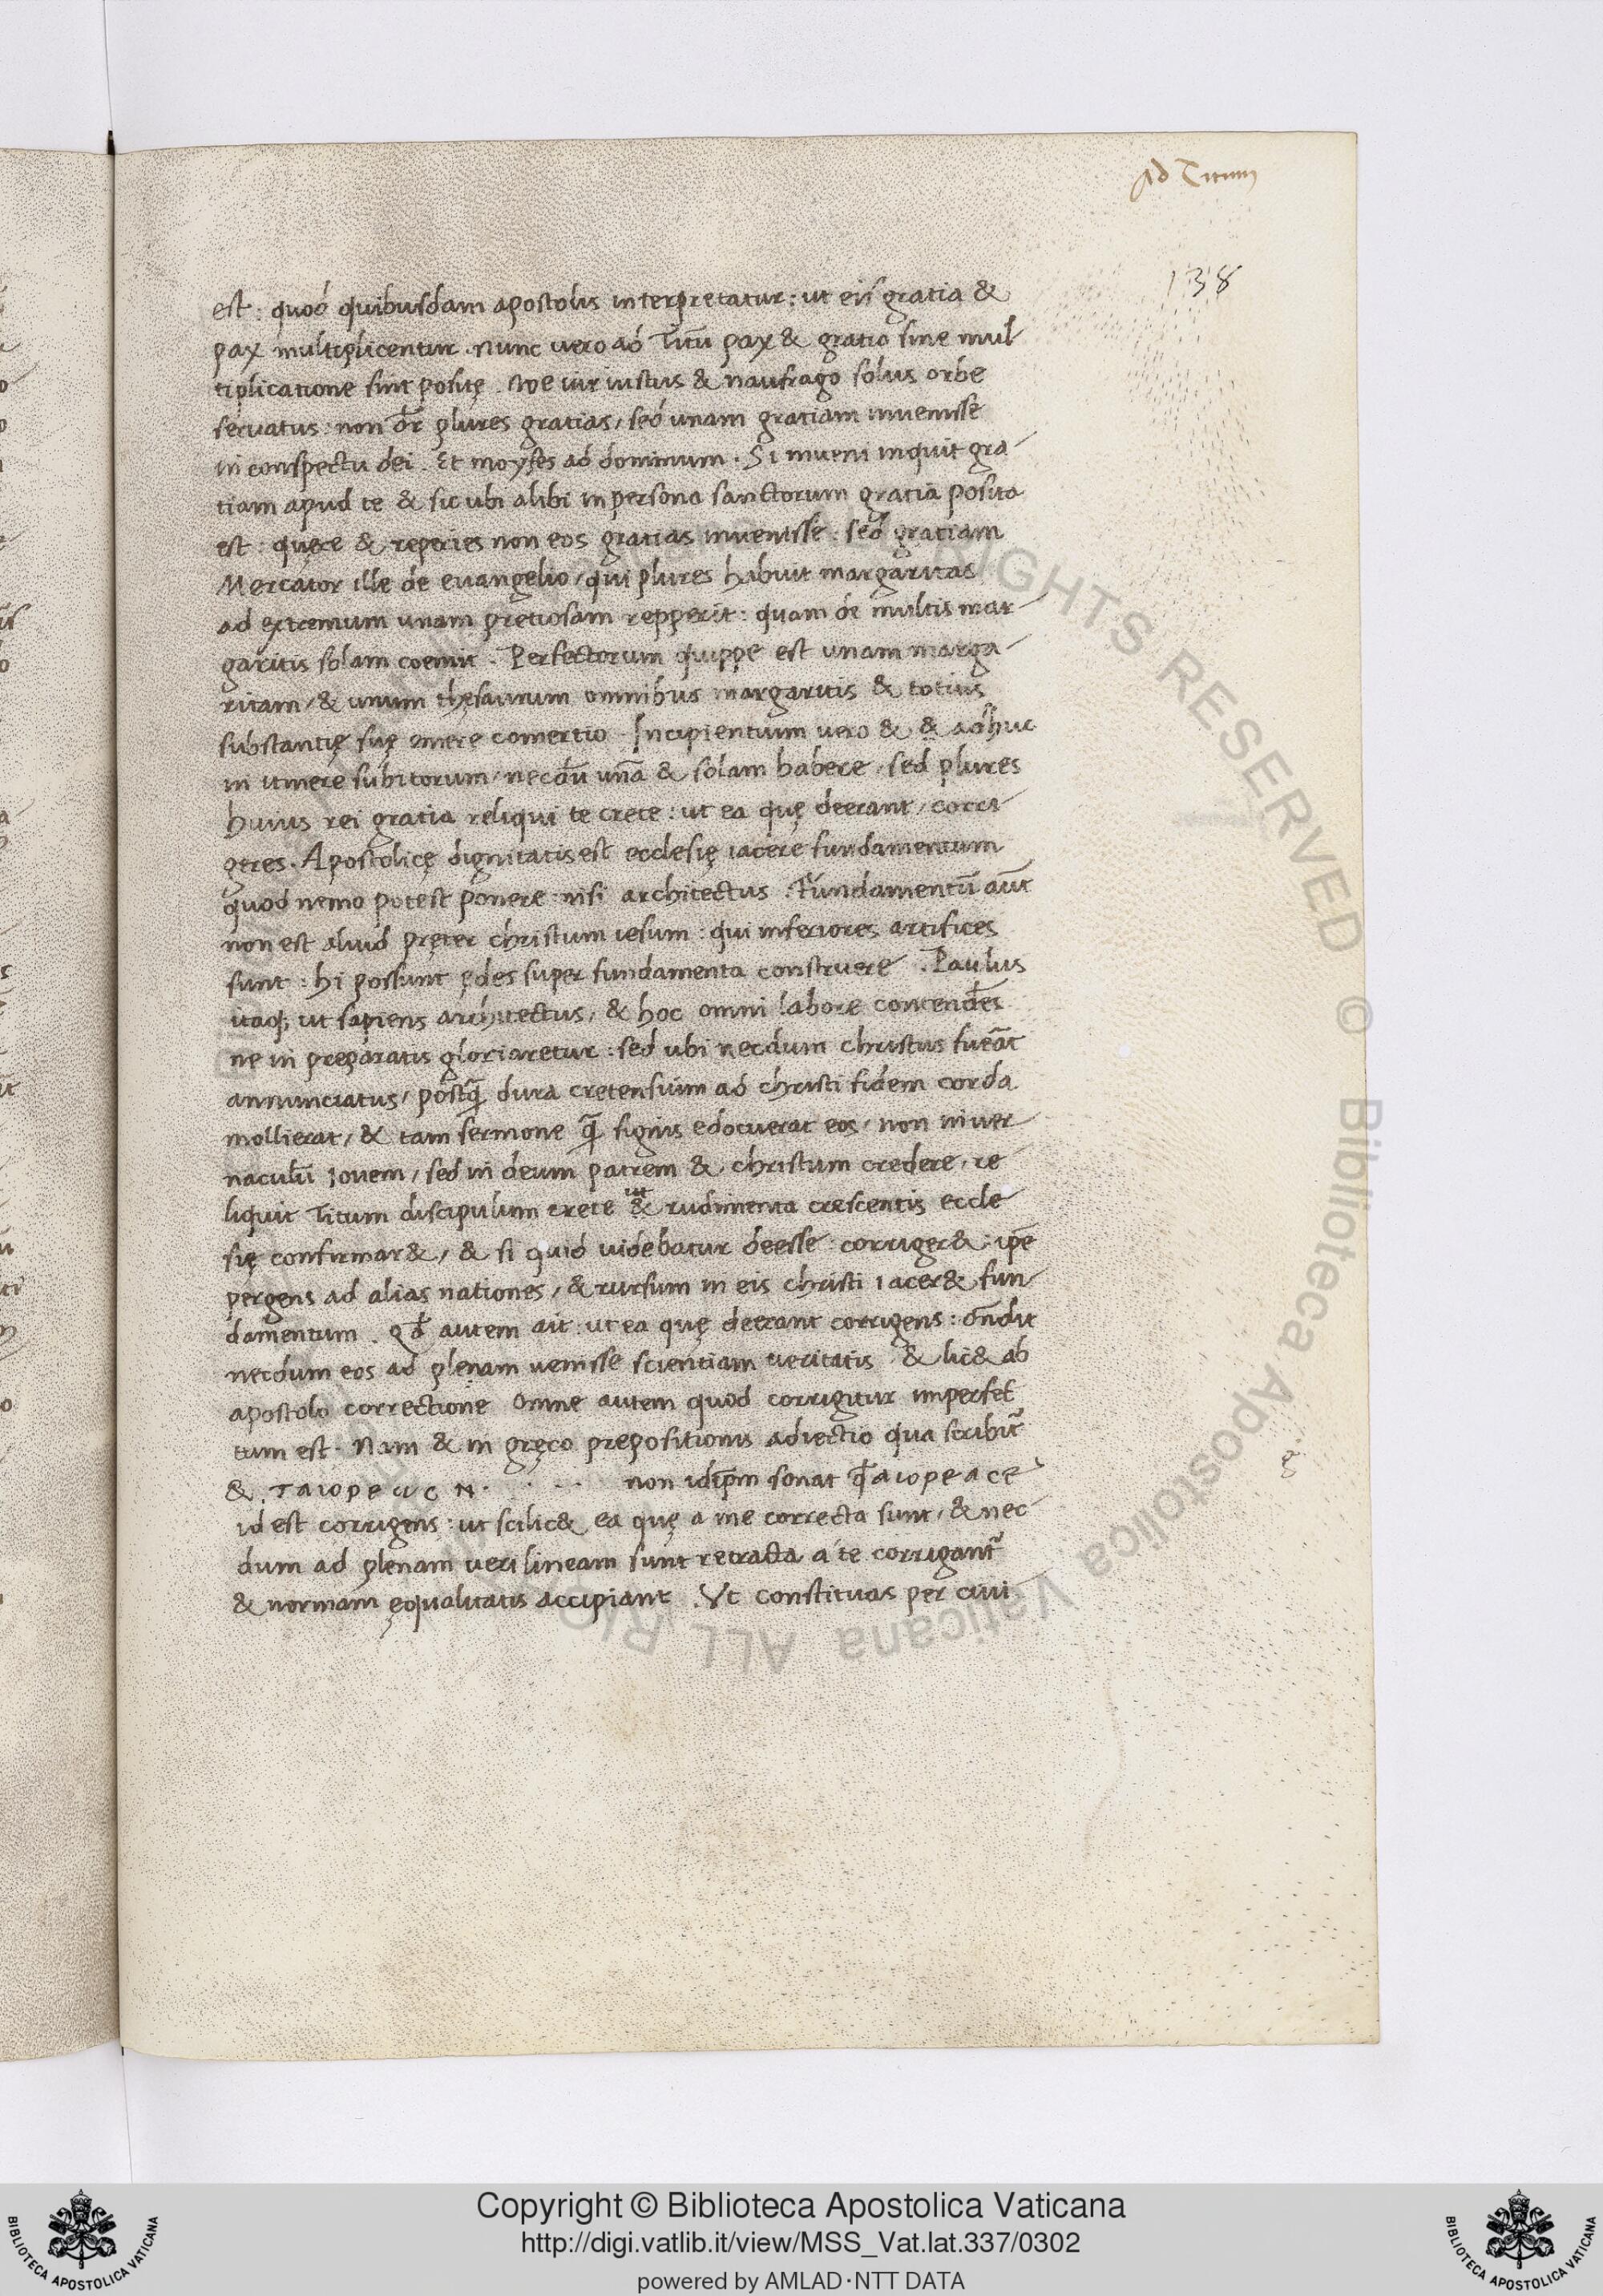 Ad Titum
138
est: quod quibusdam apostolis interpretatur: ut eis gratia &
pax multiplicentur. nunc uero ad Titũ pax & gratia sine mul
tiplicatione sint positę. Noe uir iustus & naufrago solus orbe
seruatus: non dr̃ plures gratias, sed unam gratiam inuenisse
in conspectu dei. Et moyses ad dominum. Si inueni inquit gra-
tiam apud te & sicubi alibi in persona sanctorum gratia posita
est: quęre & reperies non eos gratias inuenisse: sed gratiam
Mercator ille de euangelio, qui plures habuit margaritas
ad extremum unam pretiosam repperit: quam de multis mar-
garitis solam coemit. Perfectorum quippe est unam marga-
ritam, & unum thęsaurum omnibus margaritis & totius
substantię suę mere comertio. Incipientium uero & & adhuc
in itinere subitorum, necdũ unã & solam habere, sed plures
huius rei gratia reliqui te crete: ut ea quę deerant, corri-
geres. Apostolicę dignitatis est ecclesię iacere fundamentum
quod nemo potest ponere nisi architectus. Fundamentũ aũt
non est aliud pręter christum iesum: qui inferiores artifices
sunt: hi possunt ędes super fundamenta construere. Paulus
itaq; ut sapiens architectus, & hoc omni labore contendẽs
ne in pręparatis gloriaretur: sed ubi necdum christus fuẽat
annunciatus, postq̃ dura cretensium ad christi fidem corda
mollierat, & tam sermone q̃ signis edocuerat eos, non in uer-
naculũ Iouem, sed in deum patrem & christum credere, re
liquit Titum discipulum crete ut & rudimenta crescentis eccle-
się confirmar&, & si quid uidebatur deesse corriger&: ip̃e
pergens ad alias nationes, & rursum in eis christi iacer& fun-
damentum. Qđ autem ait: ut ea quę deerant corrigens: oñdit
necdum eos ad plenam uenisse scientiam ueritatis & lic& ab
apostolo correctione Omne autem quod corrigitur imperfec
tum est. Nam & in gręco prępositionis adiectio qua scribit̃
&. TAIOPEUCN. . . . non idip̃m sonat q̃d AIOPEACE
id est corrigens: ut scilic& ea quę a me correcta sunt, & nec-
dum ad plenam ueri lineam sunt retracta a te corrigant̃
& normam ęqualitatis accipiant. Vt constituas per ciui
© Biblioteca Apostolica Vaticana ALL RIGHTS RESERVED
Copyright © Biblioteca Apostolica Vaticana
http://digi.vatlib.it/view/MSS_Vat.lat.337/0302
powered by AMLAD·NTT DATA
BIBLIOTECA APOSTOLICA VATICANA
BIBLIOTECA APOSTOLICA VATICANA